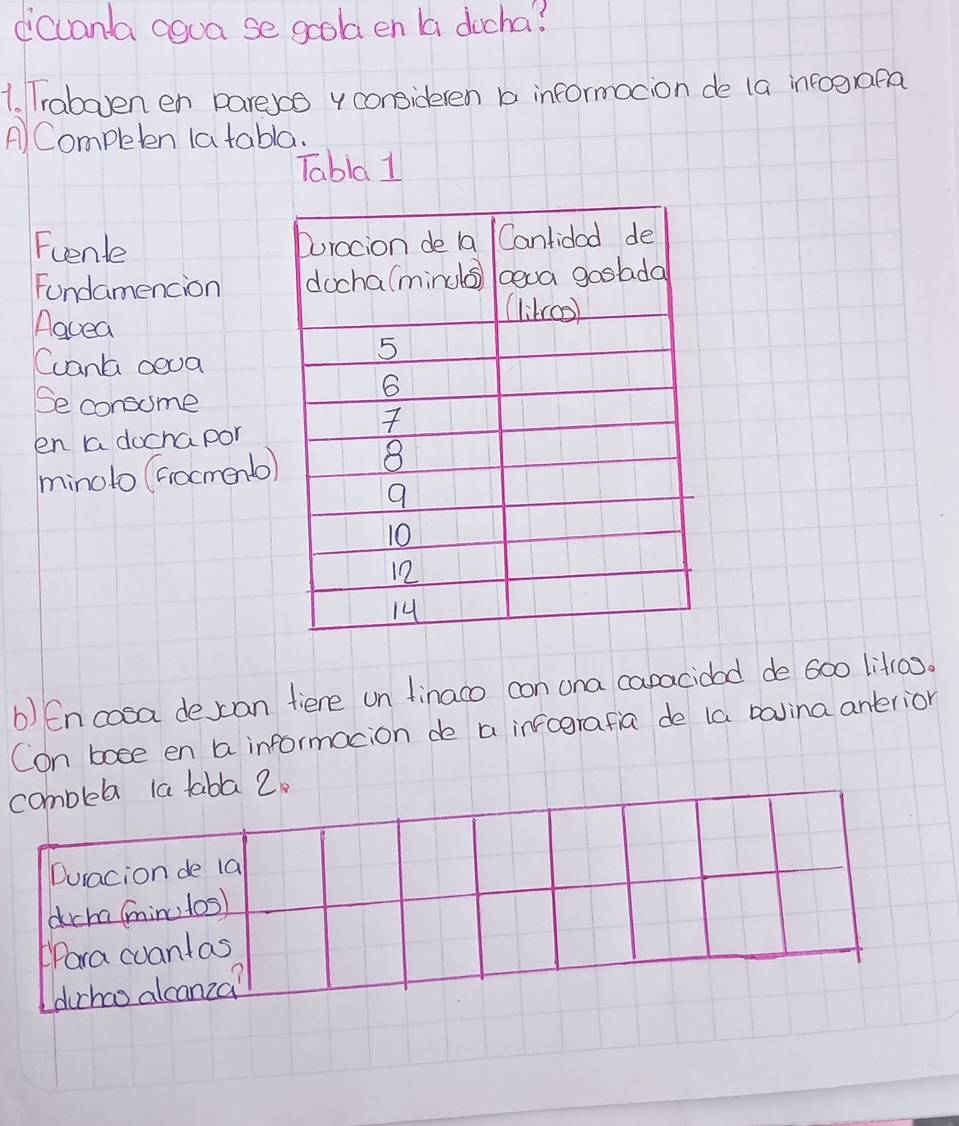 ¿Cuanta agua se gasta en la ducha?
1. Trabajen en parejas y consideren la informacion de la infografia
A) Completen la tabla.
Tabla 1
Fuente
Fundamencion
Aquea
Cuanta agua
Se consume
en la ducha por
minuto (Fracmento)
Duracion de la ducha (minutos)
Cantidad de agua gastada (litros)
5
6
7
8
9
10
12
14
b) En casa de xan tiene un tinaco con una capacidad de 600 litros.
Con base en la informacion de la infografia de la pajina anterior
completa la tabla 2.
Duracion de la
ducha (minutos)
¿Para cuantas
duchas alcanza?